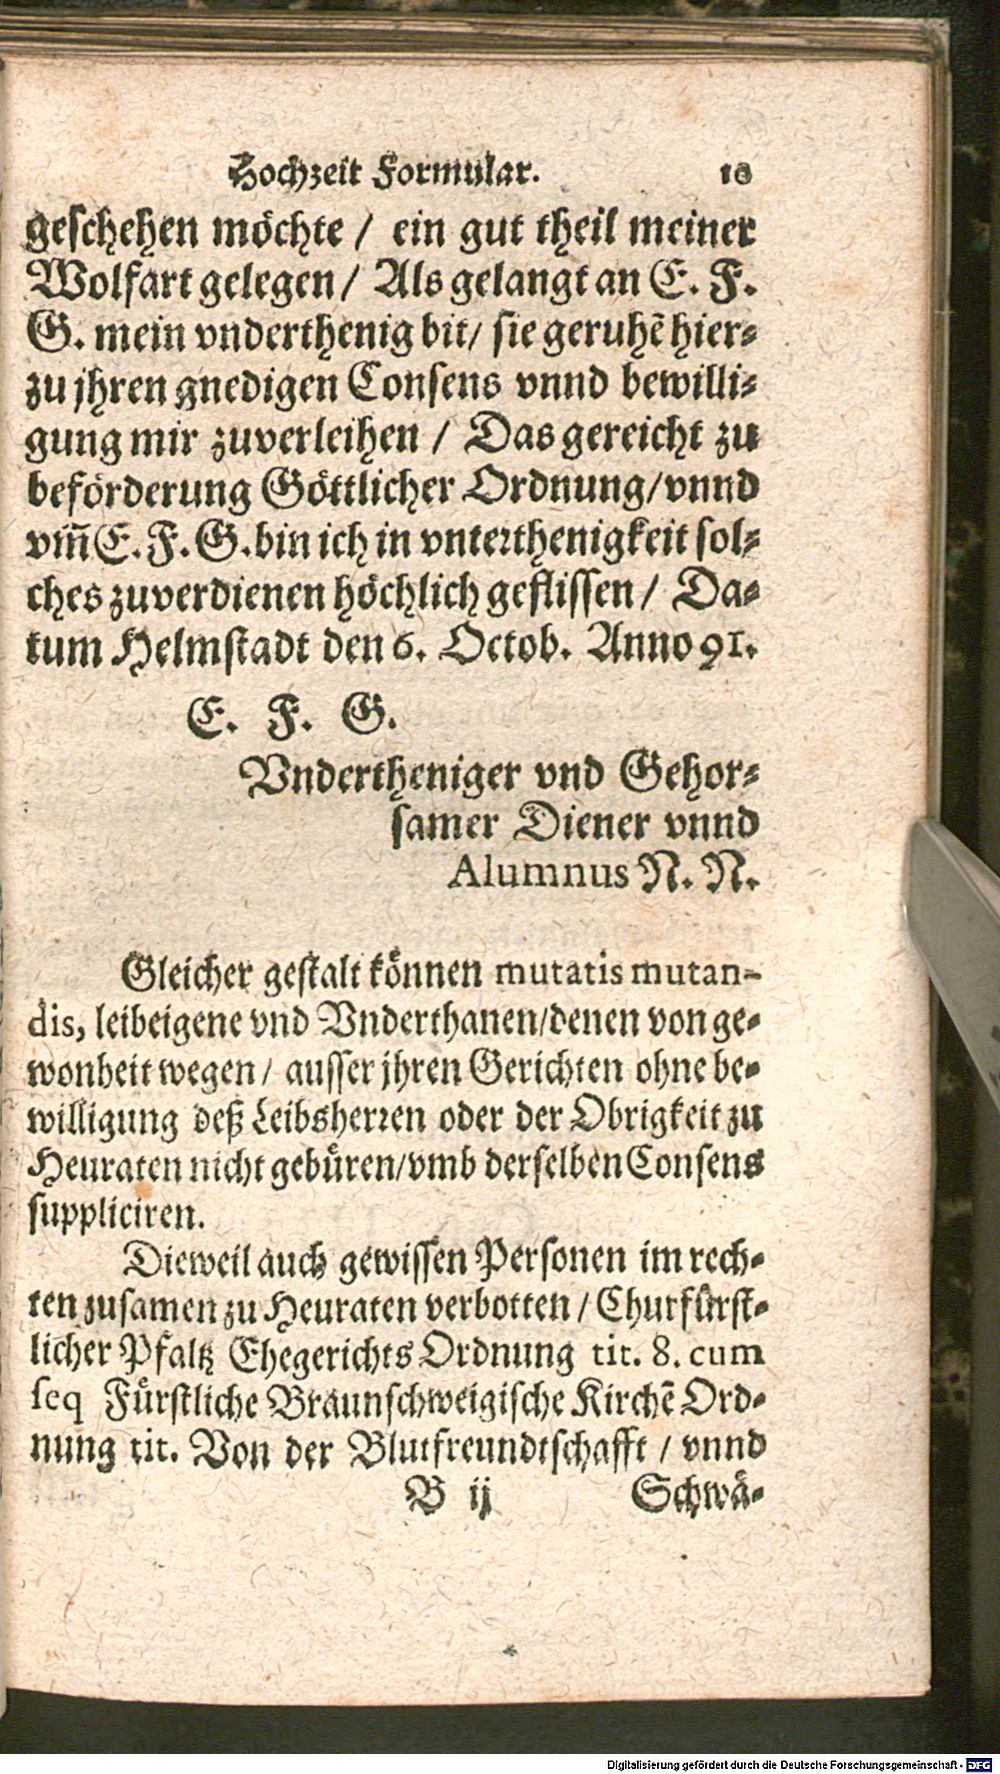 Hochzeit Formular. 10
geschehen möchte / ein gut theil meiner
Wolfart gelegen / Als gelangt an E. F.
G. mein vnderthenig bit / sie geruhẽ hier⸗
zu jhren gnedigen Consens vnnd bewilli⸗
gung mir zuverleihen / Das gereicht zu
beförderung Göttlicher Ordnung / vnnd
vm̃ E. F. G. bin ich in vnterthenigkeit sol⸗
ches zuverdienen höchlich geflissen / Da⸗
tum Helmstadt den 6. Octob. Anno 91.
E. F. G.
Vndertheniger vnd Gehor⸗
samer Diener vnnd
Alumnus N. N.
Gleicher gestalt können mutatis mutan-
dis, leibeigene vnd Vnderthanen / denen von ge⸗
wonheit wegen / ausser jhren Gerichten ohne be⸗
willigung deß Leibsherren oder der Obrigkeit zu
Heuraten nicht gebüren / vmb derselben Consens
suppliciren.
Dieweil auch gewissen Personen im rech⸗
ten zusamen zu Heuraten verbotten / Churfürst⸗
licher Pfaltz Ehegerichts Ordnung tit. 8. cum
seq Fürstliche Braunschweigische Kirchẽ Ord⸗
nung tit. Von der Blutfreundtschafft / vnnd
B ij Schwä⸗
Digitalisierung gefördert durch die Deutsche Forschungsgemeinschaft - DFG